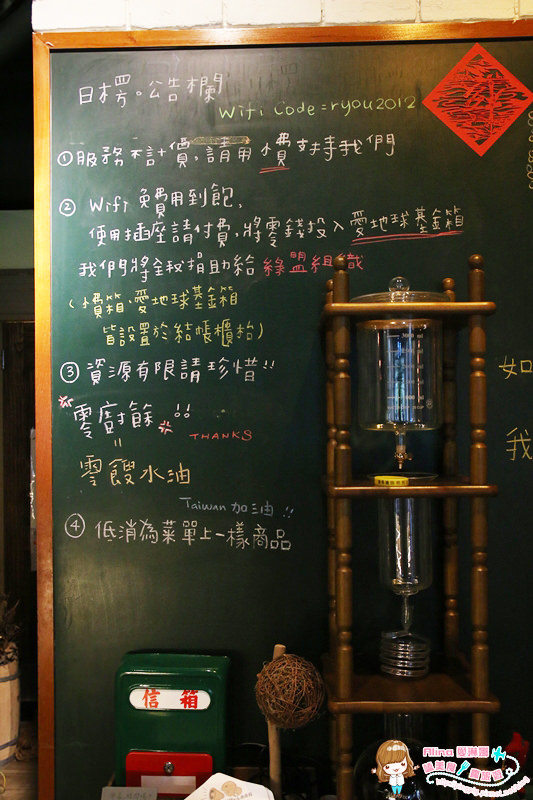 日楞。公告欄
Wifi Code=ryou2012
①服務不計價,請用小費支持我們
② Wifi 免費用到飽,
使用插座請付費,將零錢投入愛地球基金箱
我們將全數捐助給綠盟組織
(小費箱、愛地球基金箱
皆設置於結帳櫃抬)
③ 資源有限請珍惜!!
零廚餘!!
THANKS
=
零餿水油
Taiwan 加油!!
④ 低消為菜單上一樣商品
如
我
信箱